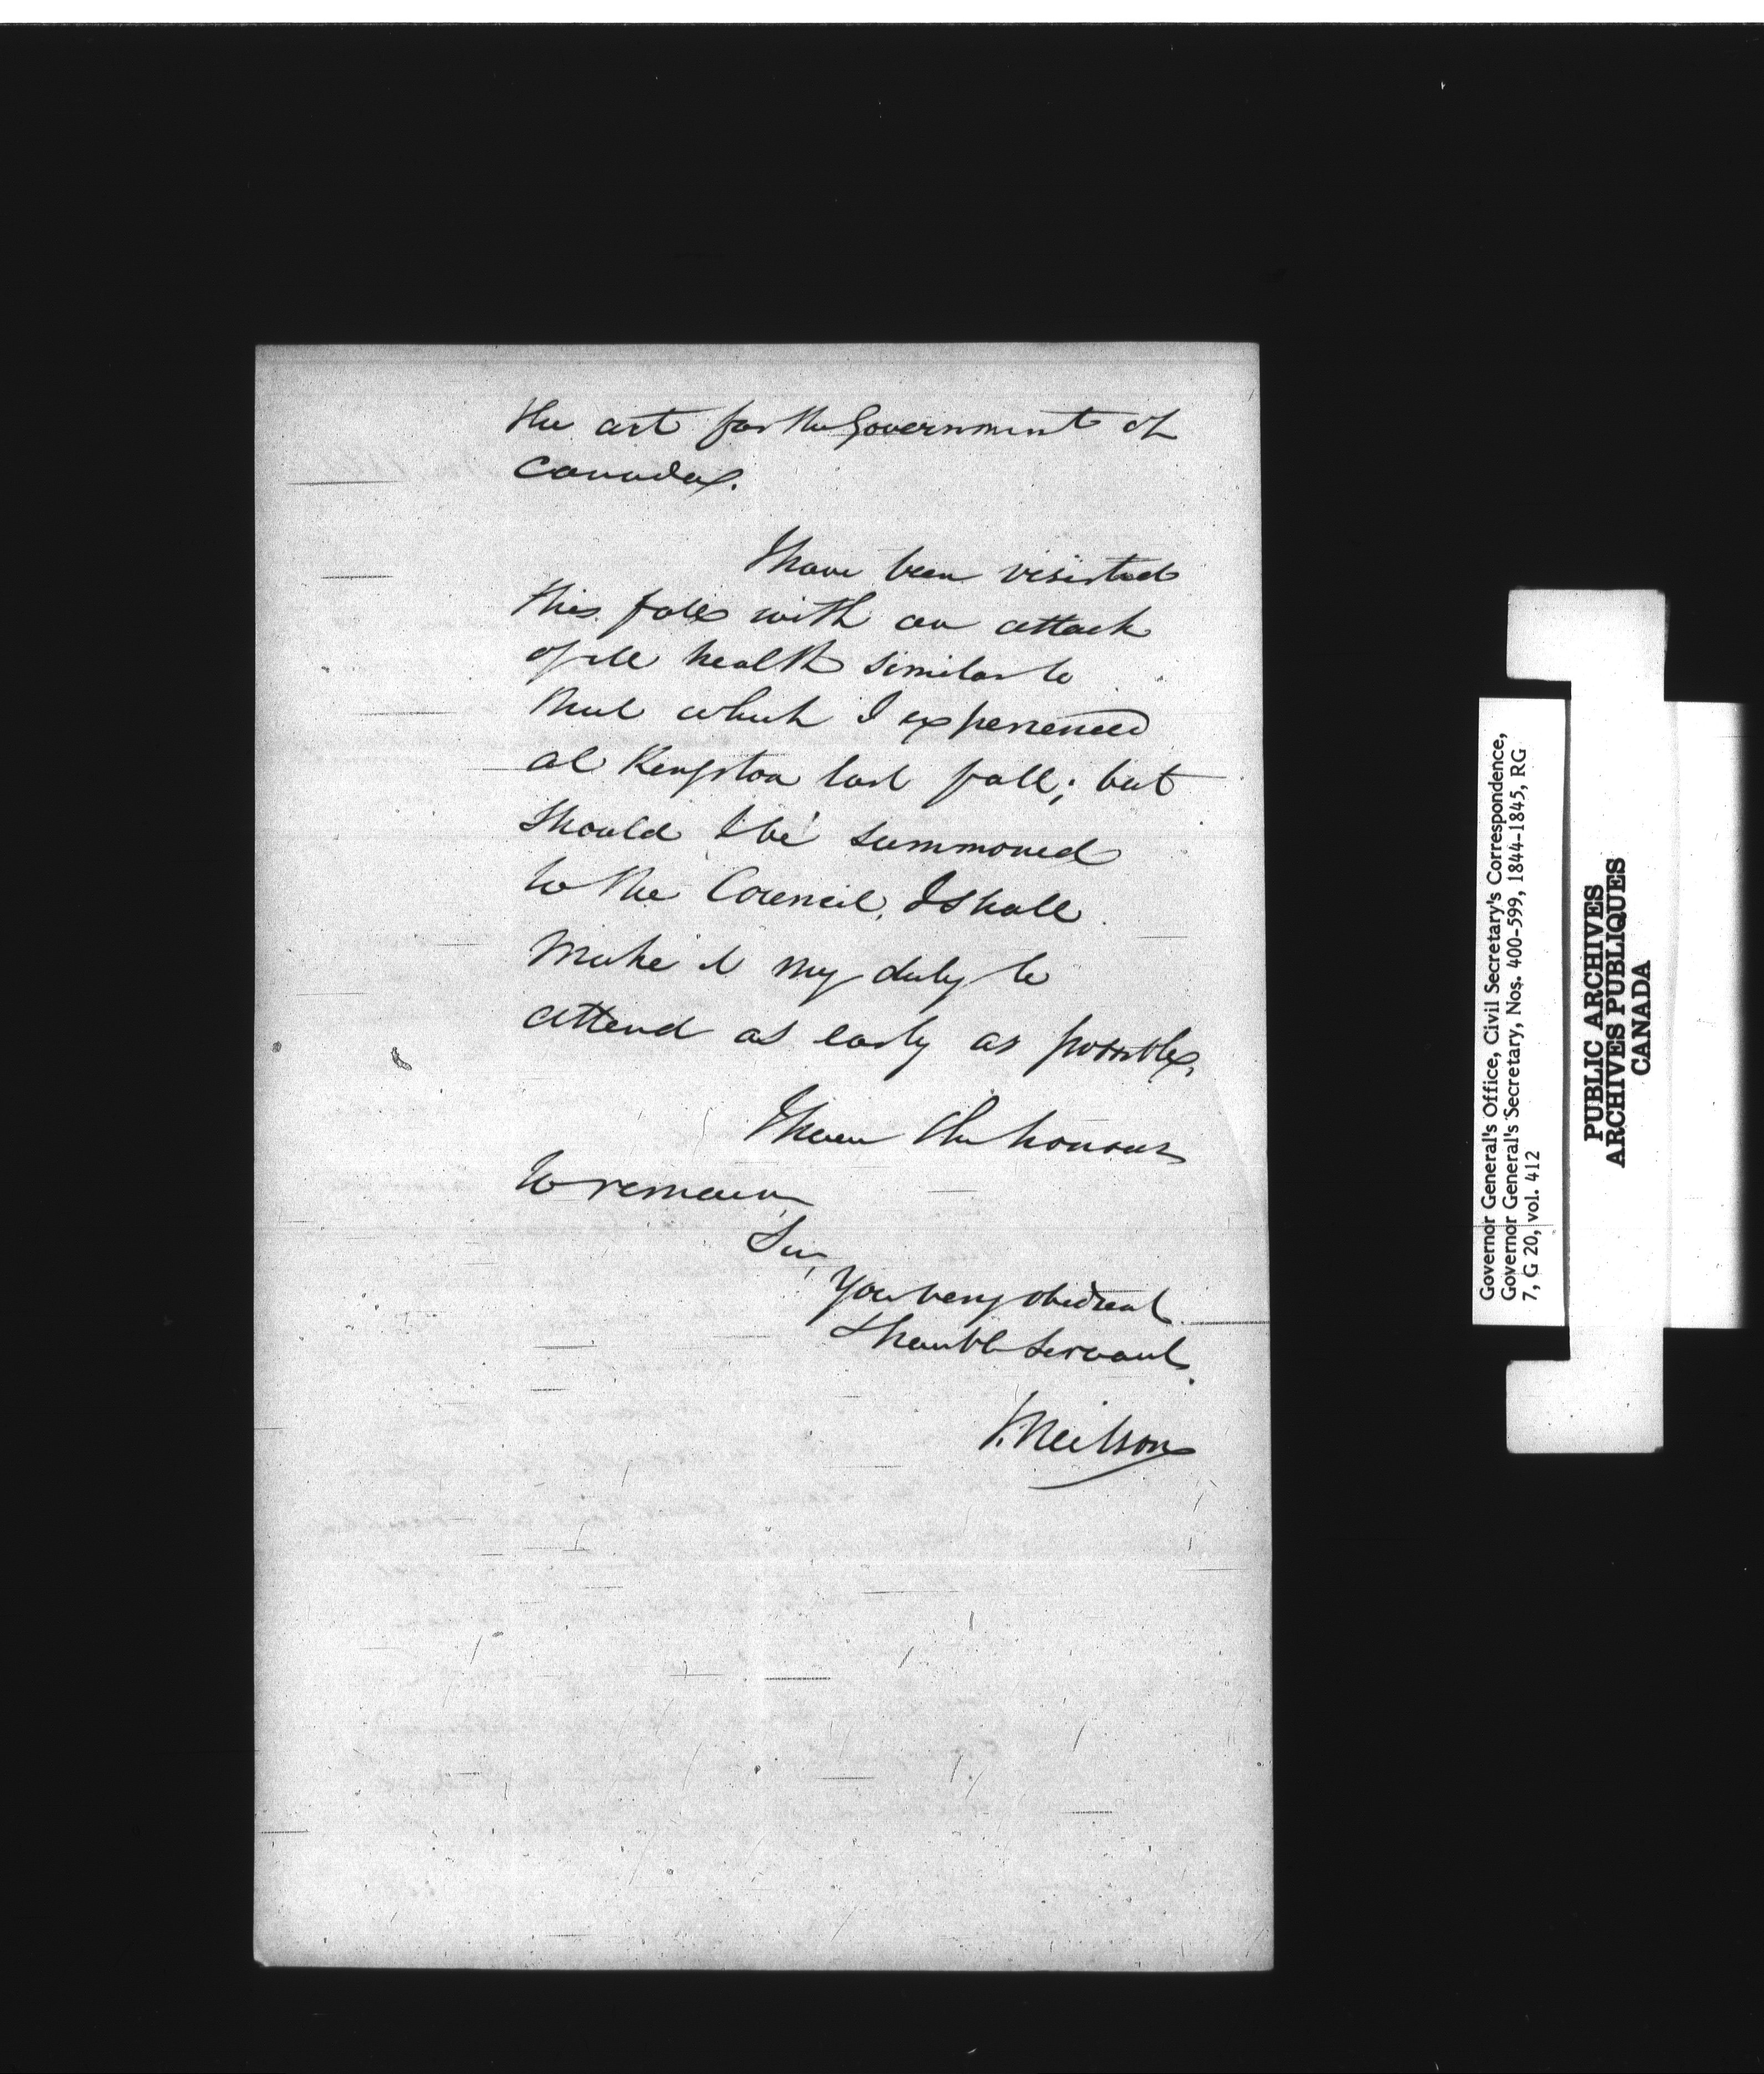 the act for the Government of
Canada.
I have been visited
this fall with an attack
of ill health similar to
that which I experienced
at Kingston last fall; but
should I be summoned
to the Council, I shall
make it my duty to
attend as early as possible,
I have the honour
to remain
Sir,
Your very obedient
& humble servant.
J. Neilson
Governor General's Office, Civil Secretary's Correspondence,
Governor General's Secretary, Nos. 400-599, 1844-1845, RG
7, G 20, vol. 412
PUBLIC ARCHIVES
ARCHIVES PUBLIQUES
CANADA